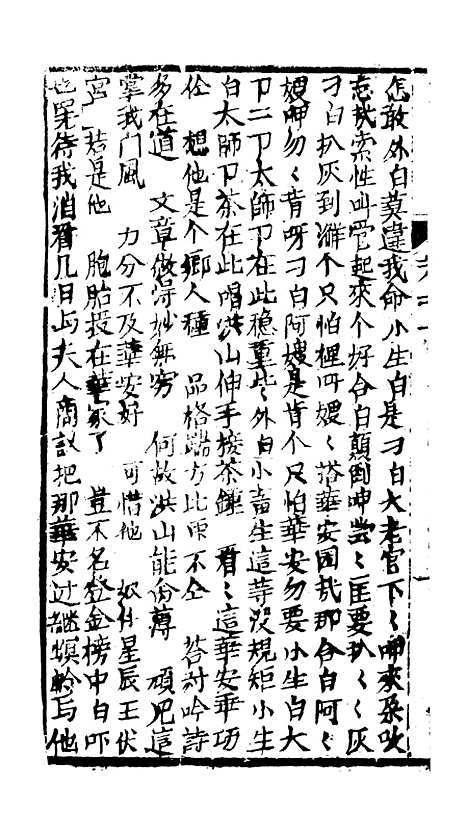 怎敢外白莫違我命小生白是刁白大老官下〻呻來朶吹
志哉索性叫宅起來个好合白顛倒呻尝〻匡要扒〻〻灰
刁白扒灰到瀸个只怕裡呻嫂〻搭華安困哉那合白阿〻
嫂呻勿〻肯呀刁白阿嫂是肯个只怕華安勿要小生白大
卩二卩太師卩〻在此穏重些〻外白小畜生這等没規矩小生
白太師卩茶在此唱洪山伸手接茶鍾　看〻這華安華功
伀　想他是个鄉人種　品格端方比甲不仝　荅对吟詩
多在道　文章做淂妙無穷　何故洪山能份薄　頑児這
掌我门風　力分不及華安好　可惜他　奴仆星辰王伏
宮　若是他　胞胎投在華家了　豈不名登金榜中白吓
也罢待我消看几日与夫人商議把那華安过継螟蛉与他